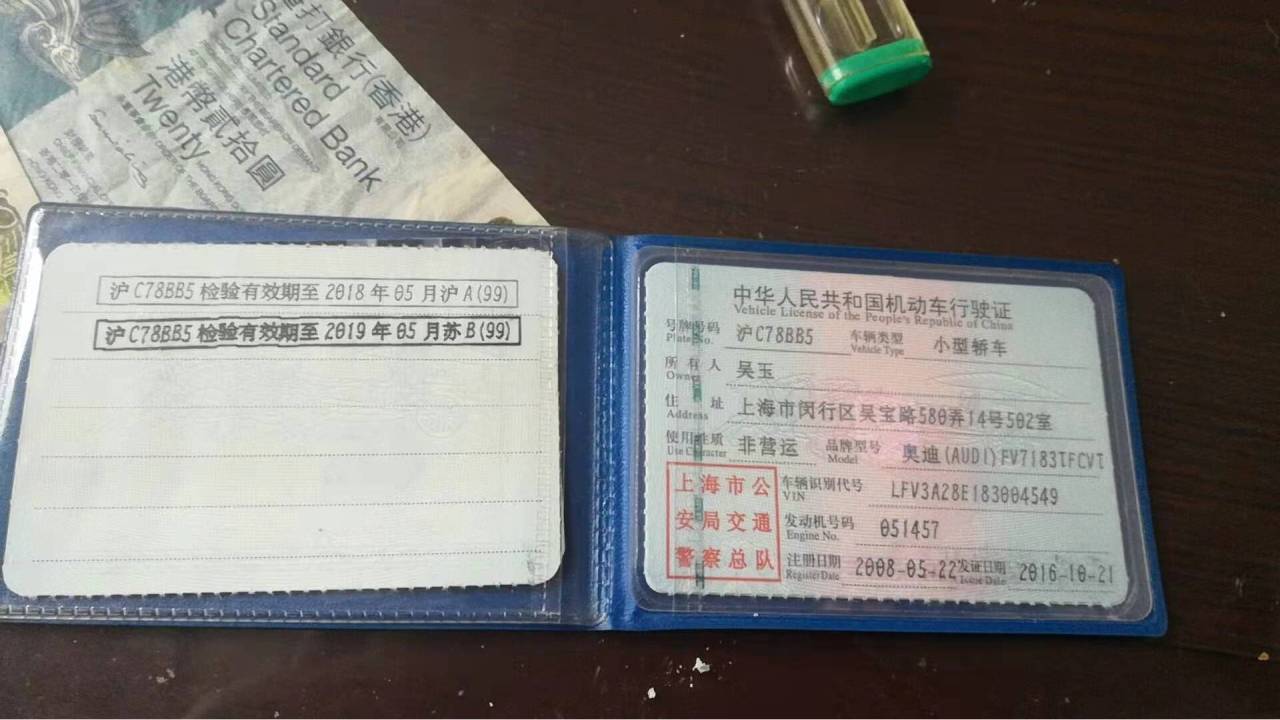 打銀行(香港)
Standard
Chartered Bank
港幣貳拾圓
Twenty
沪C78BB5检验有效期至2018年05月沪A(99)
沪C78BB5检验有效期至2019年05月苏B(99)
中华人民共和国机动车行驶证
Vehicle License of the People's Republic of China
号牌号码 沪C78BB5 车辆类型 小型轿车
Plate No. Vehicle Type
所有人 吴玉
Owner
住址 上海市闵行区吴宝路580弄14号502室
Address
使用性质 非营运 品牌型号 奥迪(AUDI)FV7183TFCVT
Use Character Model
上海市公
安局交通
警察总队
车辆识别代号 LFV3A28E183004549
VIN
发动机号码 051457
Engine No.
注册日期 2008-05-22 发证日期 2016-10-21
Register Date Issue Date